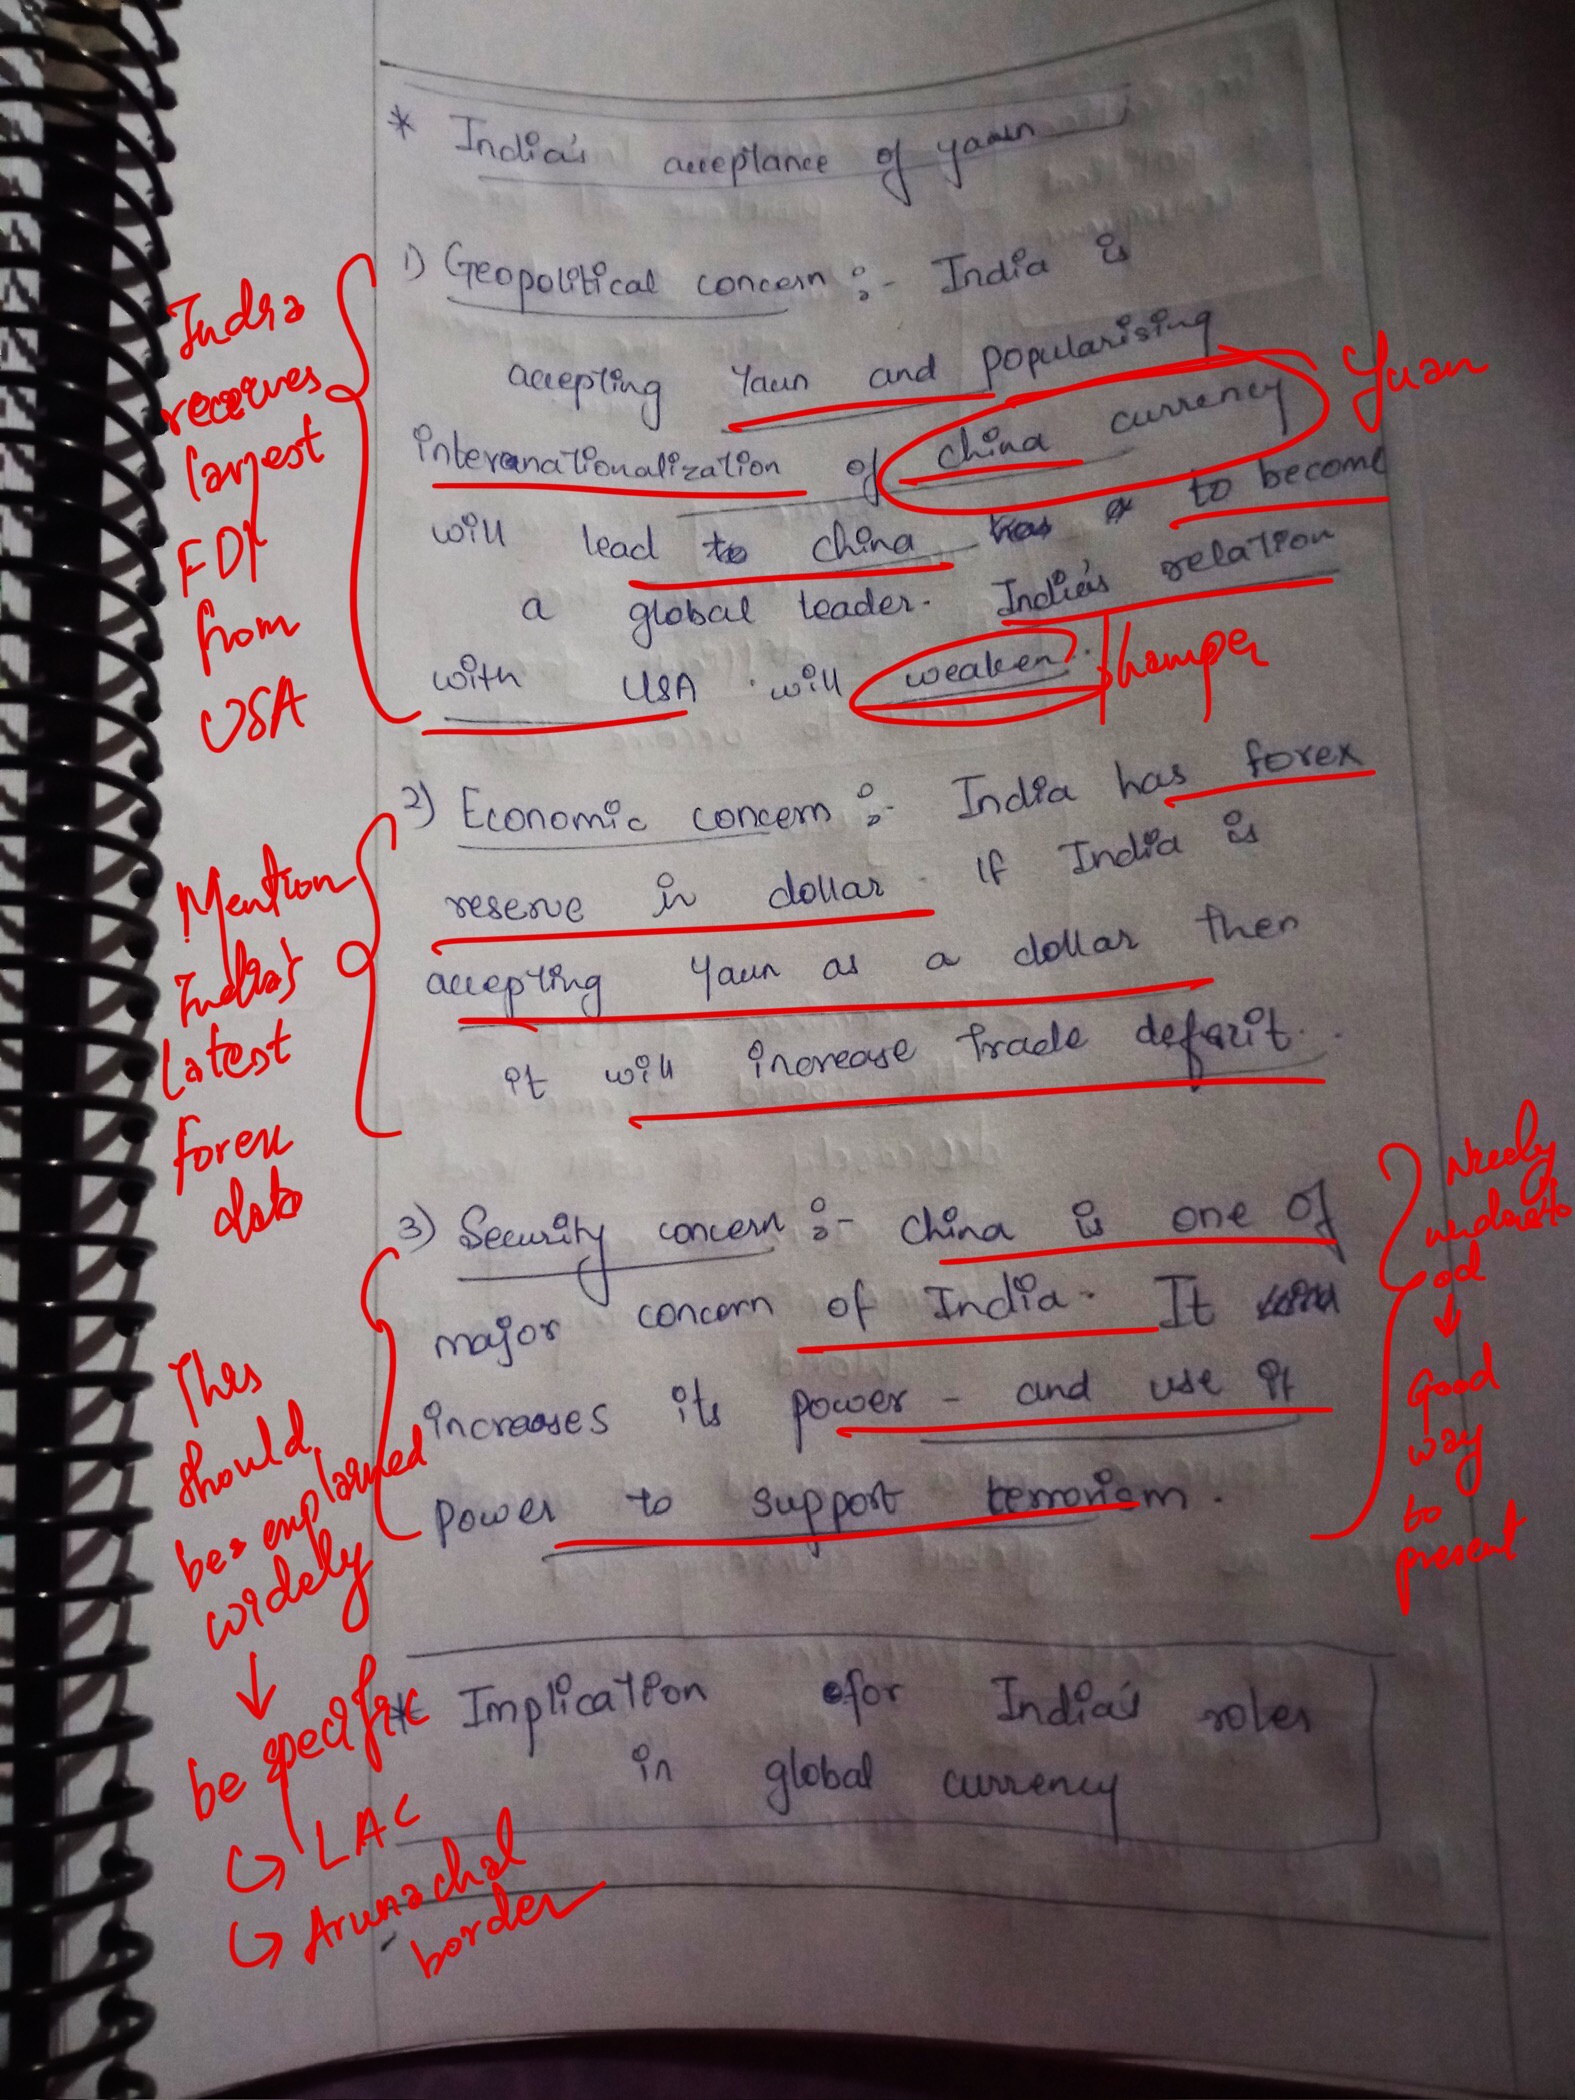 * India's acceptance of yaun
1) Geopolitical concern :- India is
accepting Yaun and popularising
internationalization of china currency
will lead to china to become
a global leader. India's relation
with USA will weaken.
2) Economic concern :- India has forex
reserve in dollar. If India is
accepting Yaun as a dollar then
it will increase trade deficit.
3) Security concern :- China is one of
major concern of India. It
increases its power - and use it
power to support terrorism.
* Implication for India's roles
in global currency
India
receives
largest
FDI
from
USA
Yuan
hamper
Mention
India's
Latest
forex
data
Nicely
understo
od
↓
Good
way
to
present
This
should
be explained
widely
↓
be specific
↳ LAC
↳ Arunachal
border